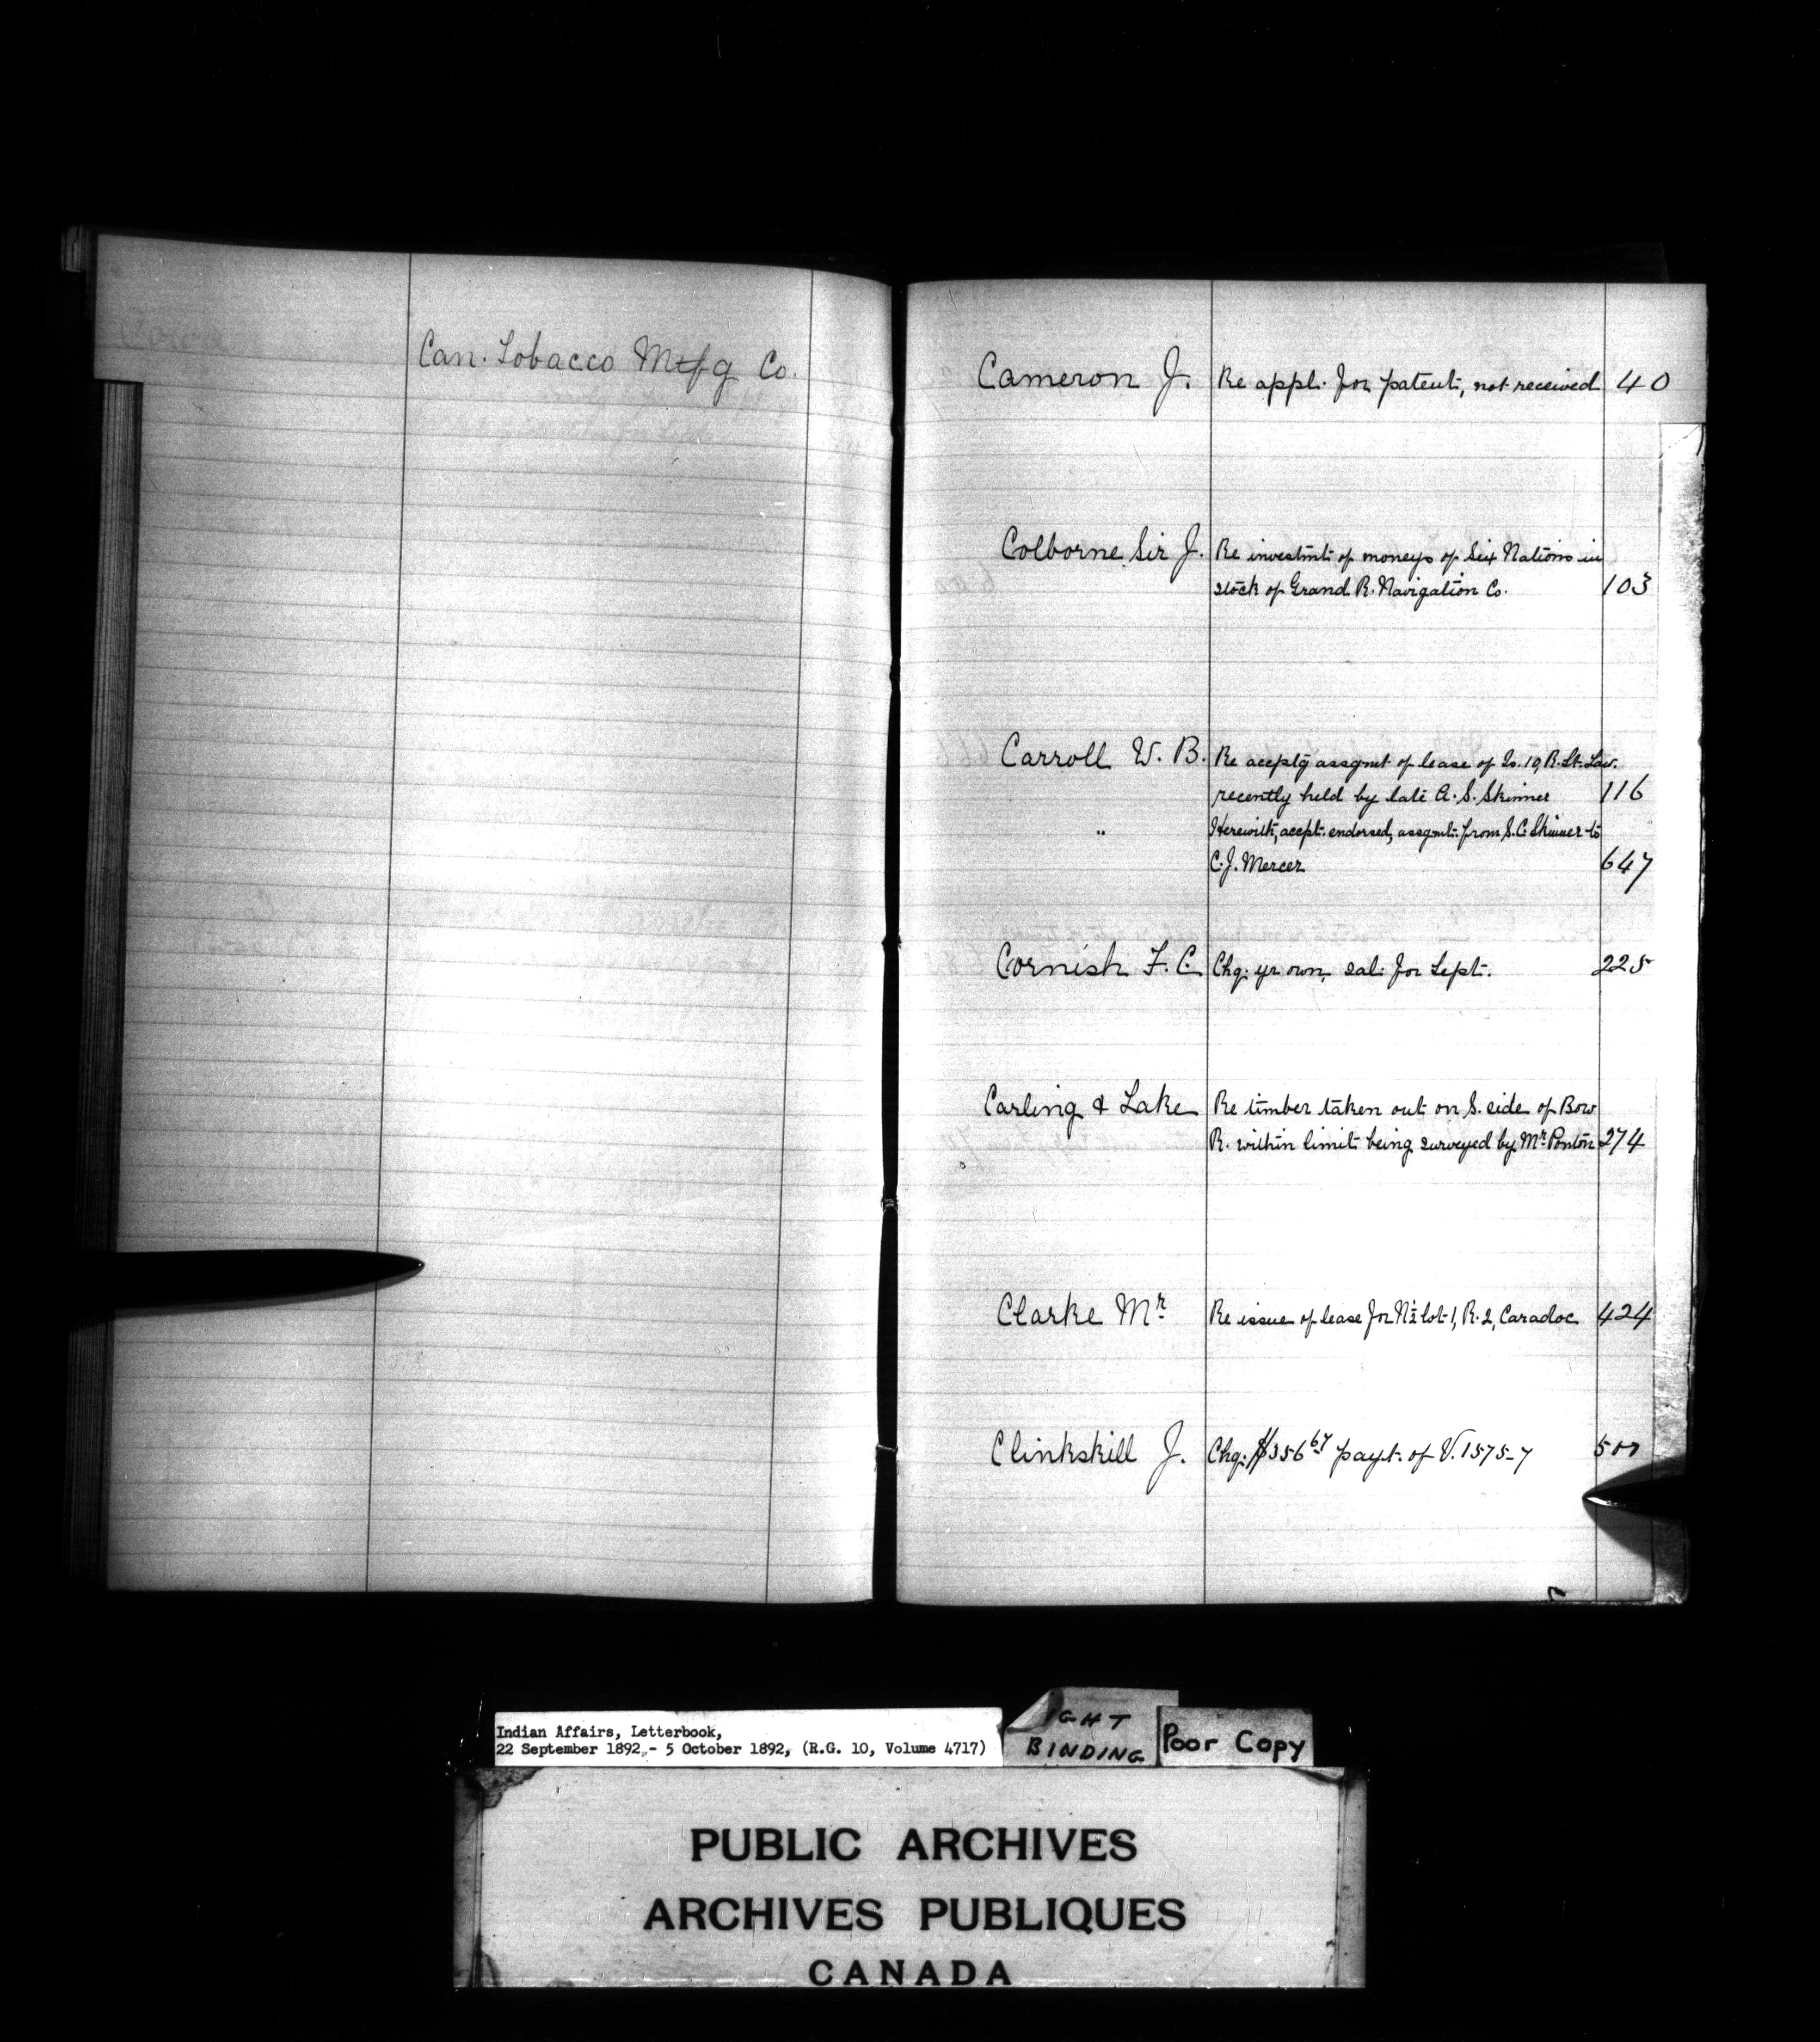 Can. Tobacco Mtfg Co.
Cameron J. Re appl. for patent, not received 40
Colborne Sir J. Re investmt of moneys of Six Nations in
stock of Grand R. Navigation Co. 103
Carroll W. B. Re acceptg assgmt of lease of Is. 10, R. St. Law.
recently held by late A. S. Skinner 116
" Herewith, accpt. endorsed, assgmt. from S. C. Skinner to
C. J. Mercer 647
Cornish F. C. Chq. yr own sal. for Sept. 225
Carling & Lake Re timber taken out on S. side of Bow
R. within limit being surveyed by Mr. Ponton 274
Clarke Mr. Re issue of lease for N½ lot 1, R. 2, Caradoc 424
Clinkskill J. Chq. $356 67 payt. of V. 1575-7
Indian Affairs, Letterbook,
22 September 1892 - 5 October 1892, (R.G. 10, Volume 4717)
IGHT
BINDING
Poor Copy
PUBLIC ARCHIVES
ARCHIVES PUBLIQUES
CANADA